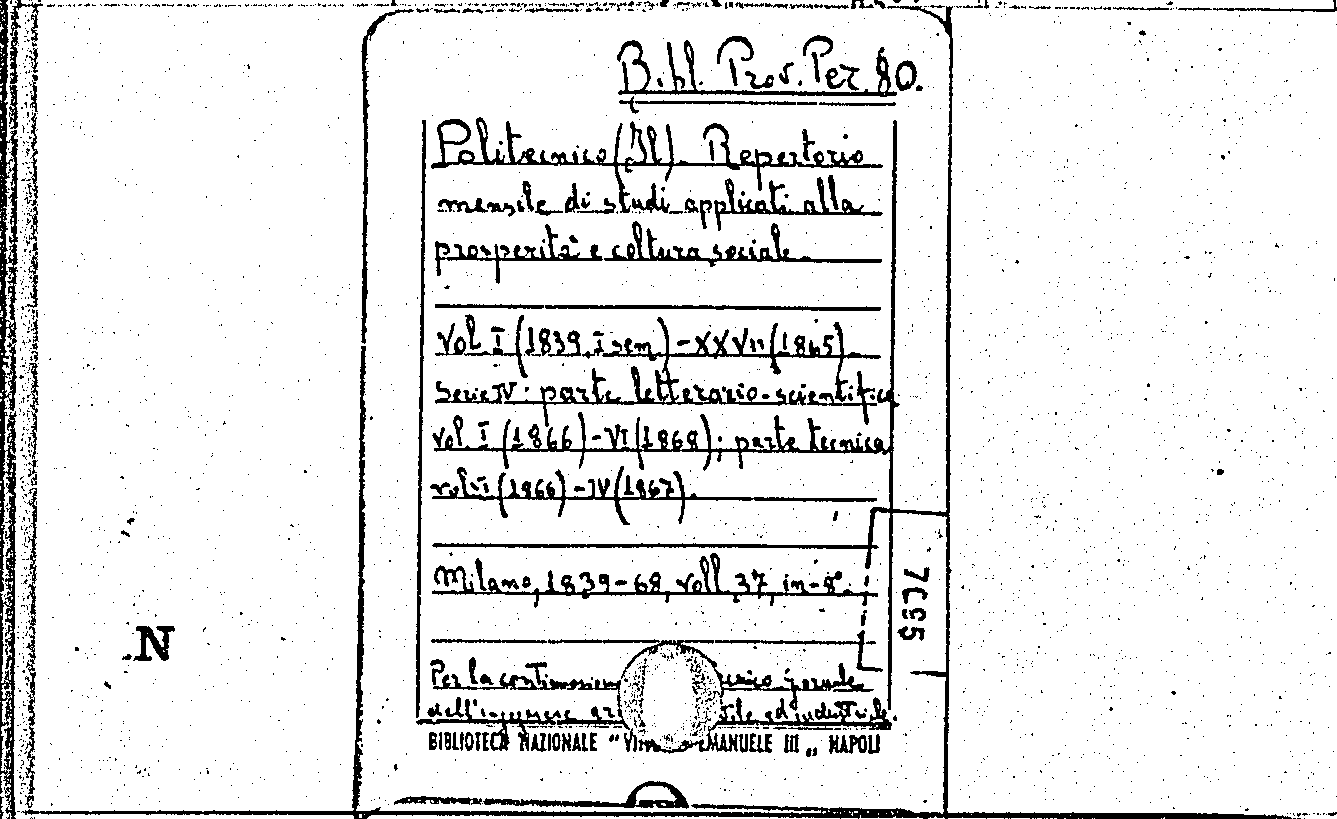 Bibl. Prov. Per. 80.
Politecnico (Il). Repertorio
mensile di studi applicati alla
prosperità e coltura sociale.
vol. I (1839, I sem.) - XXVII (1865).
Serie IV: parte letterario-scientifica
vol. I (1866) - VI (1868); parte tecnica
vol. I (1866) - IV (1867).
Milano, 1839-68, voll. 37, in-8°.
Per la giornale
dell'ingegnere ed industriale.
BIBLIOTECA NAZIONALE " EMANUELE III „ NAPOLI
7695
N